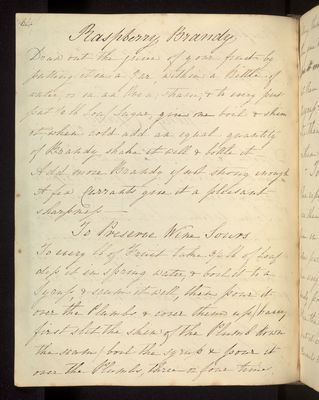 64
Raspberry Brandy
Draw out the juice of your fruit by
putting it in a Jar within a Kettle of
water, or in an Oven, strain, & to every pint
put ½ lb Loaf Sugar, give one boil & skim
it when cold add an equal quantity
of Brandy shake it well & bottle it
Add more Brandy if not strong enough
A few Currants give it a pleasant
sharpness
To Preserve Wine Sours
To every lb of Fruit take lb of Loaf
dip it in spring water, & boil it to a
Syrup & scum it well, then pour it
over the Plumbs & cover them up, having
first slit the skin of the Plumb down
the seam, boil the syrup & pour it
over the Plumbs, three or four times